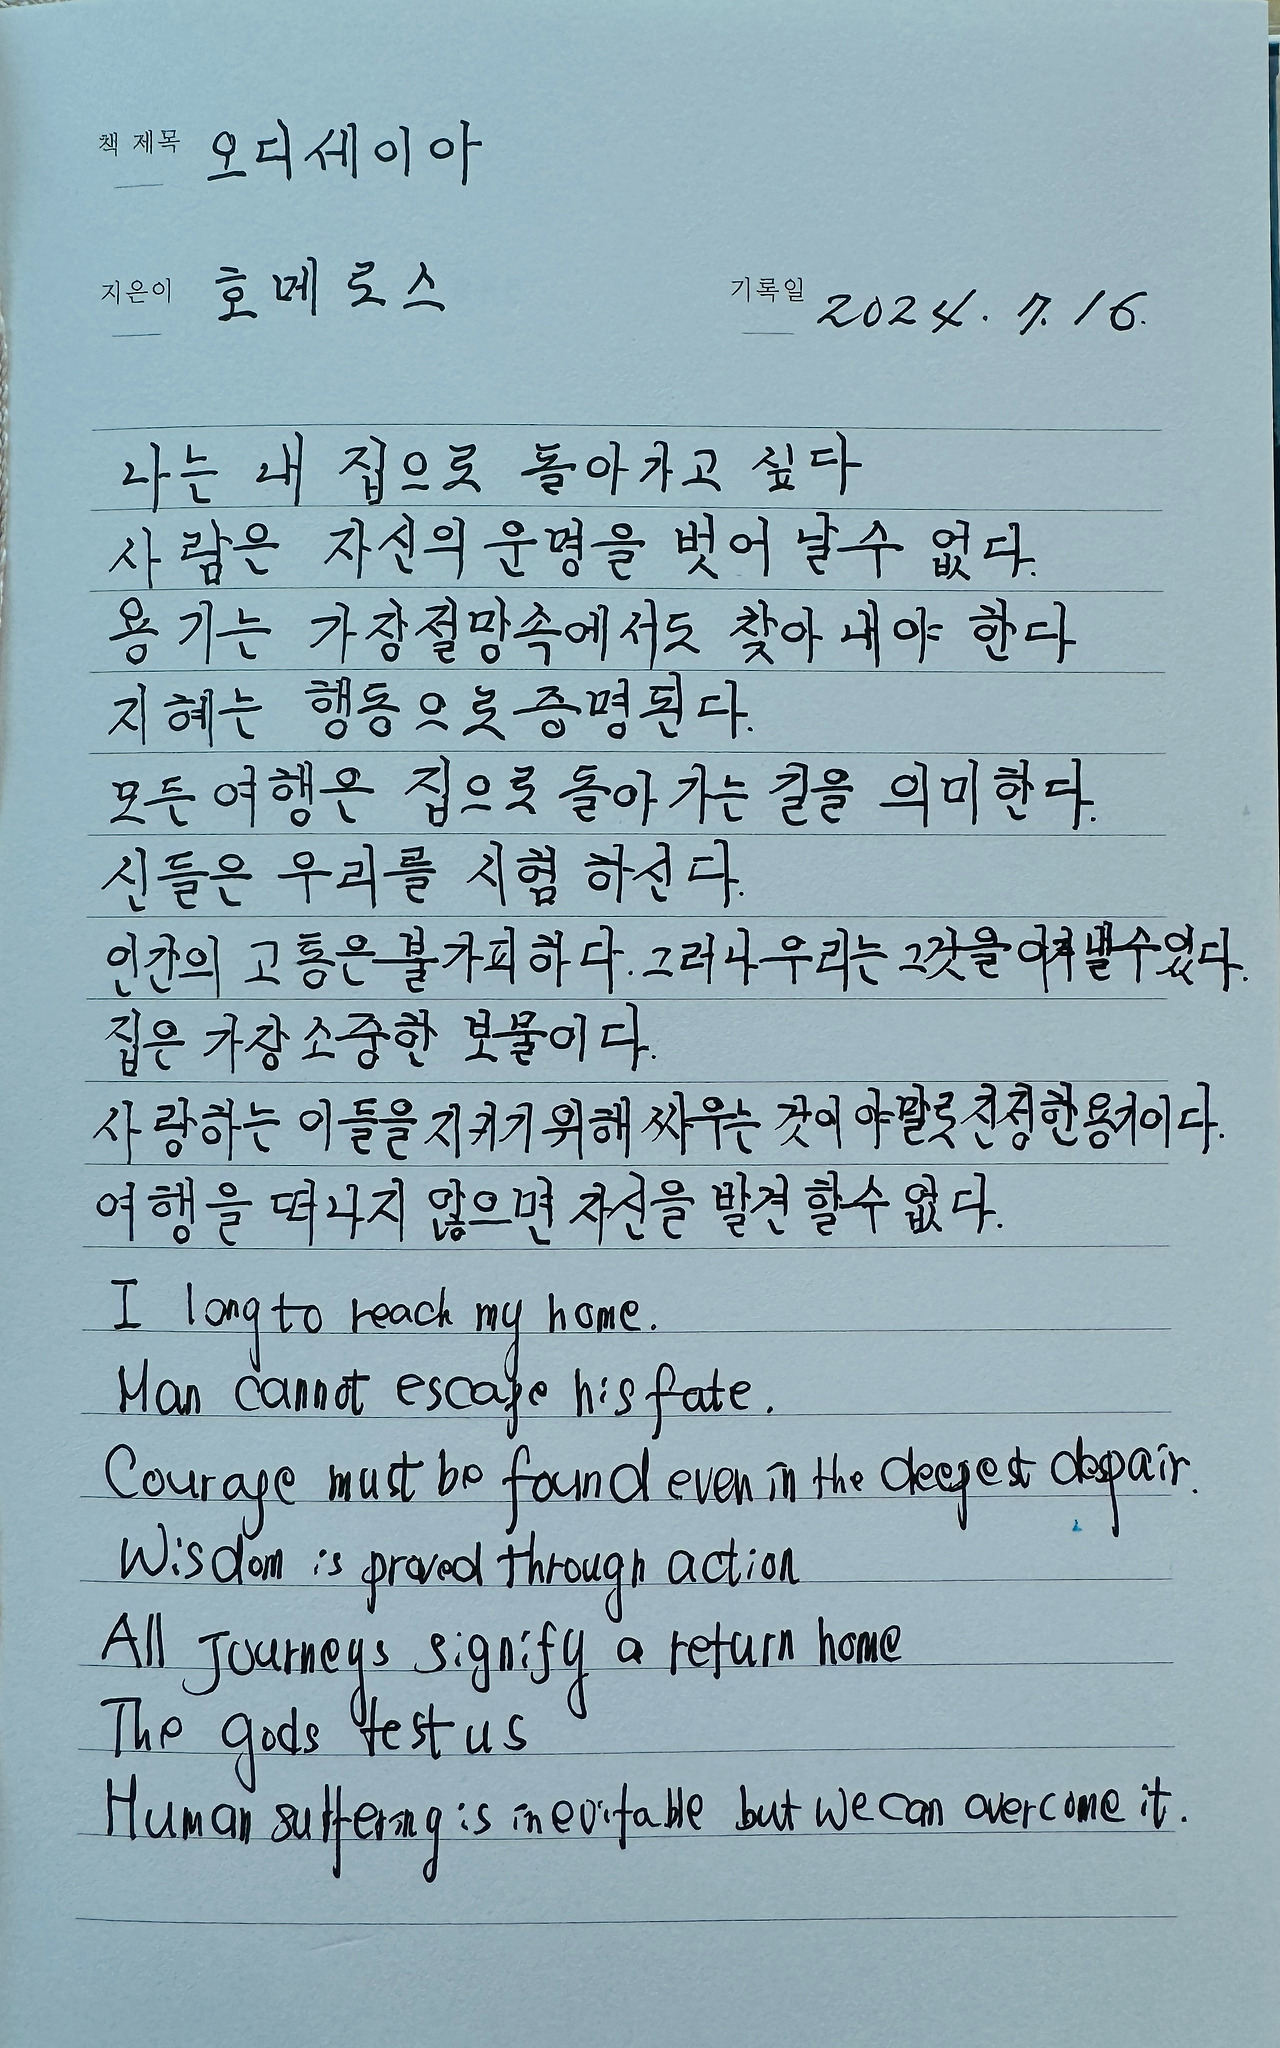 책 제목 오디세이아
지은이 호메로스 기록일 2024. 7. 16.
나는 내 집으로 돌아가고 싶다
사람은 자신의 운명을 벗어 날수 없다.
용기는 가장절망속에서도 찾아 내야 한다
지혜는 행동으로증명된다.
모든여행은 집으로 돌아 가는 길을 의미한다.
신들은 우리를 시험 하신다.
인간의 고통은불가피하다. 그러나우리는 그것을 이겨낼수있다.
집은 가장소중한 보물이다.
사랑하는 이들을지키기위해 싸우는 것이 야말로진정한용기이다.
여행을 떠나지 않으면 자신을 발견 할수 없다.
I long to reach my home.
Man cannot escape his fate.
Courage must be found even in the deepest despair.
Wisdom is proved through action
All Journeys signify a return home
The gods test us
Human suffering is inevitable but we can overcome it.